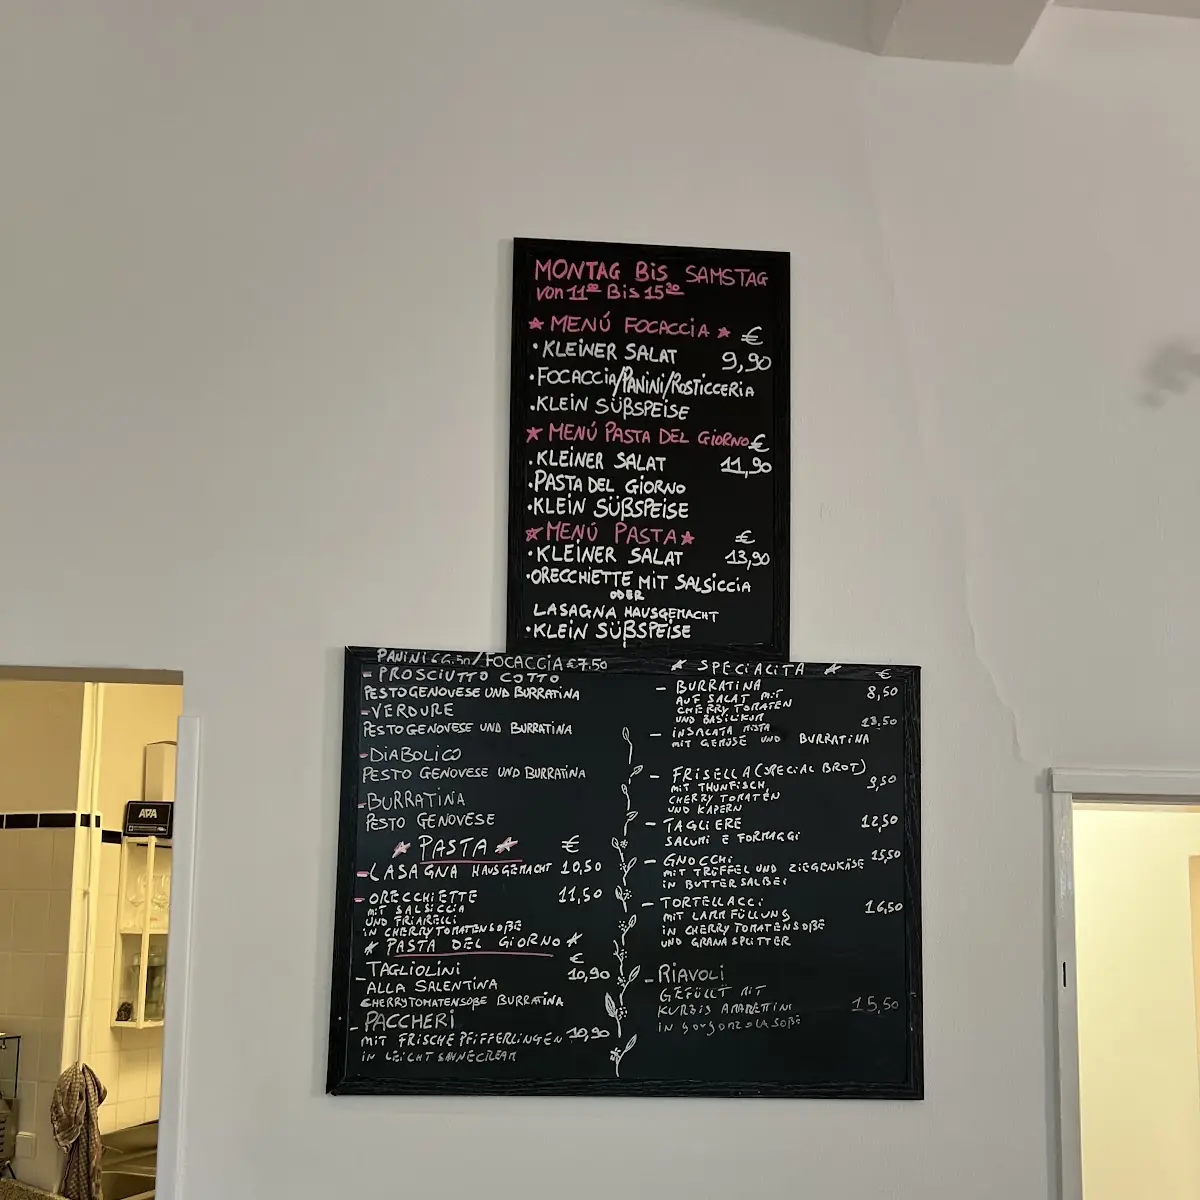 MONTAG BiS SAMSTAG
von 11⁰⁰ Bis 15³⁰
★ MENÚ FOCACCIA ★ €
• KLEINER SALAT 9,90
• FOCACCIA/PANINI/ROSTICCERIA
• KLEIN SÜßSPEISE
★ MENÚ PASTA DEL GIORNO €
• KLEINER SALAT 11,90
• PASTA DEL GIORNO
• KLEIN SÜßSPEISE
★ MENÚ PASTA ★ €
• KLEINER SALAT 13,90
• ORECCHIETTE MIT SALSICCIA
ODER
LASAGNA HAUSGEMACHT
• KLEIN SÜßSPEISE
PANINI €6.50/FOCACCIA €7.50
- PROSCIUTTO COTTO
PESTO GENOVESE UND BURRATINA
- VERDURE
PESTO GENOVESE UND BURRATINA
- DIABOLICO
PESTO GENOVESE UND BURRATINA
- BURRATINA
PESTO GENOVESE
★ PASTA ★ €
- LASAGNA HAUSGEMACHT 10,50
- ORECCHIETTE 11,50
MIT SALSICCIA
UND FRIARELLI
IN CHERRYTOMATENSOßE
★ PASTA DEL GIORNO ★
€
- TAGLIOLINI 10,90
ALLA SALENTINA
CHERRYTOMATENSOßE BURRATINA
- PACCHERI
MIT FRISCHE PFIFFERLINGEN 10,90
IN LEICHT SAHNECREAM
★ SPECIALITA ★ €
- BURRATINA 8,50
AUF SALAT MIT
CHERRY TOMATEN
UND BASILIKUM
- INSALATA MISTA 13,50
MIT GEMÜSE UND BURRATINA
- FRISELLA (SPECIAL BROT) 9,50
MIT THUNFISCH,
CHERRY TOMATEN
UND KAPERN
- TAGLIERE 12,50
SALUMI E FORMAGGI
- GNOCCHI 15,50
MIT TRÜFFEL UND ZIEGENKÄSE
IN BUTTER SALBEI
- TORTELLACCI 16,50
MIT LAMM FÜLLUNG
IN CHERRY TOMATENSOßE
UND GRANA SPLITTER
- RIAVOLI
GEFÜLLT MIT
KÜRBIS AMARETTINI 15,50
IN GORGONZOLA SOßE